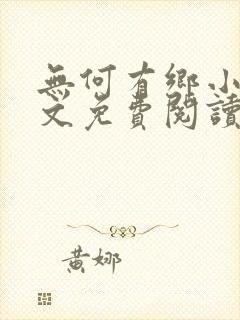 無何有鄉小
文免費閱讀
黃娜